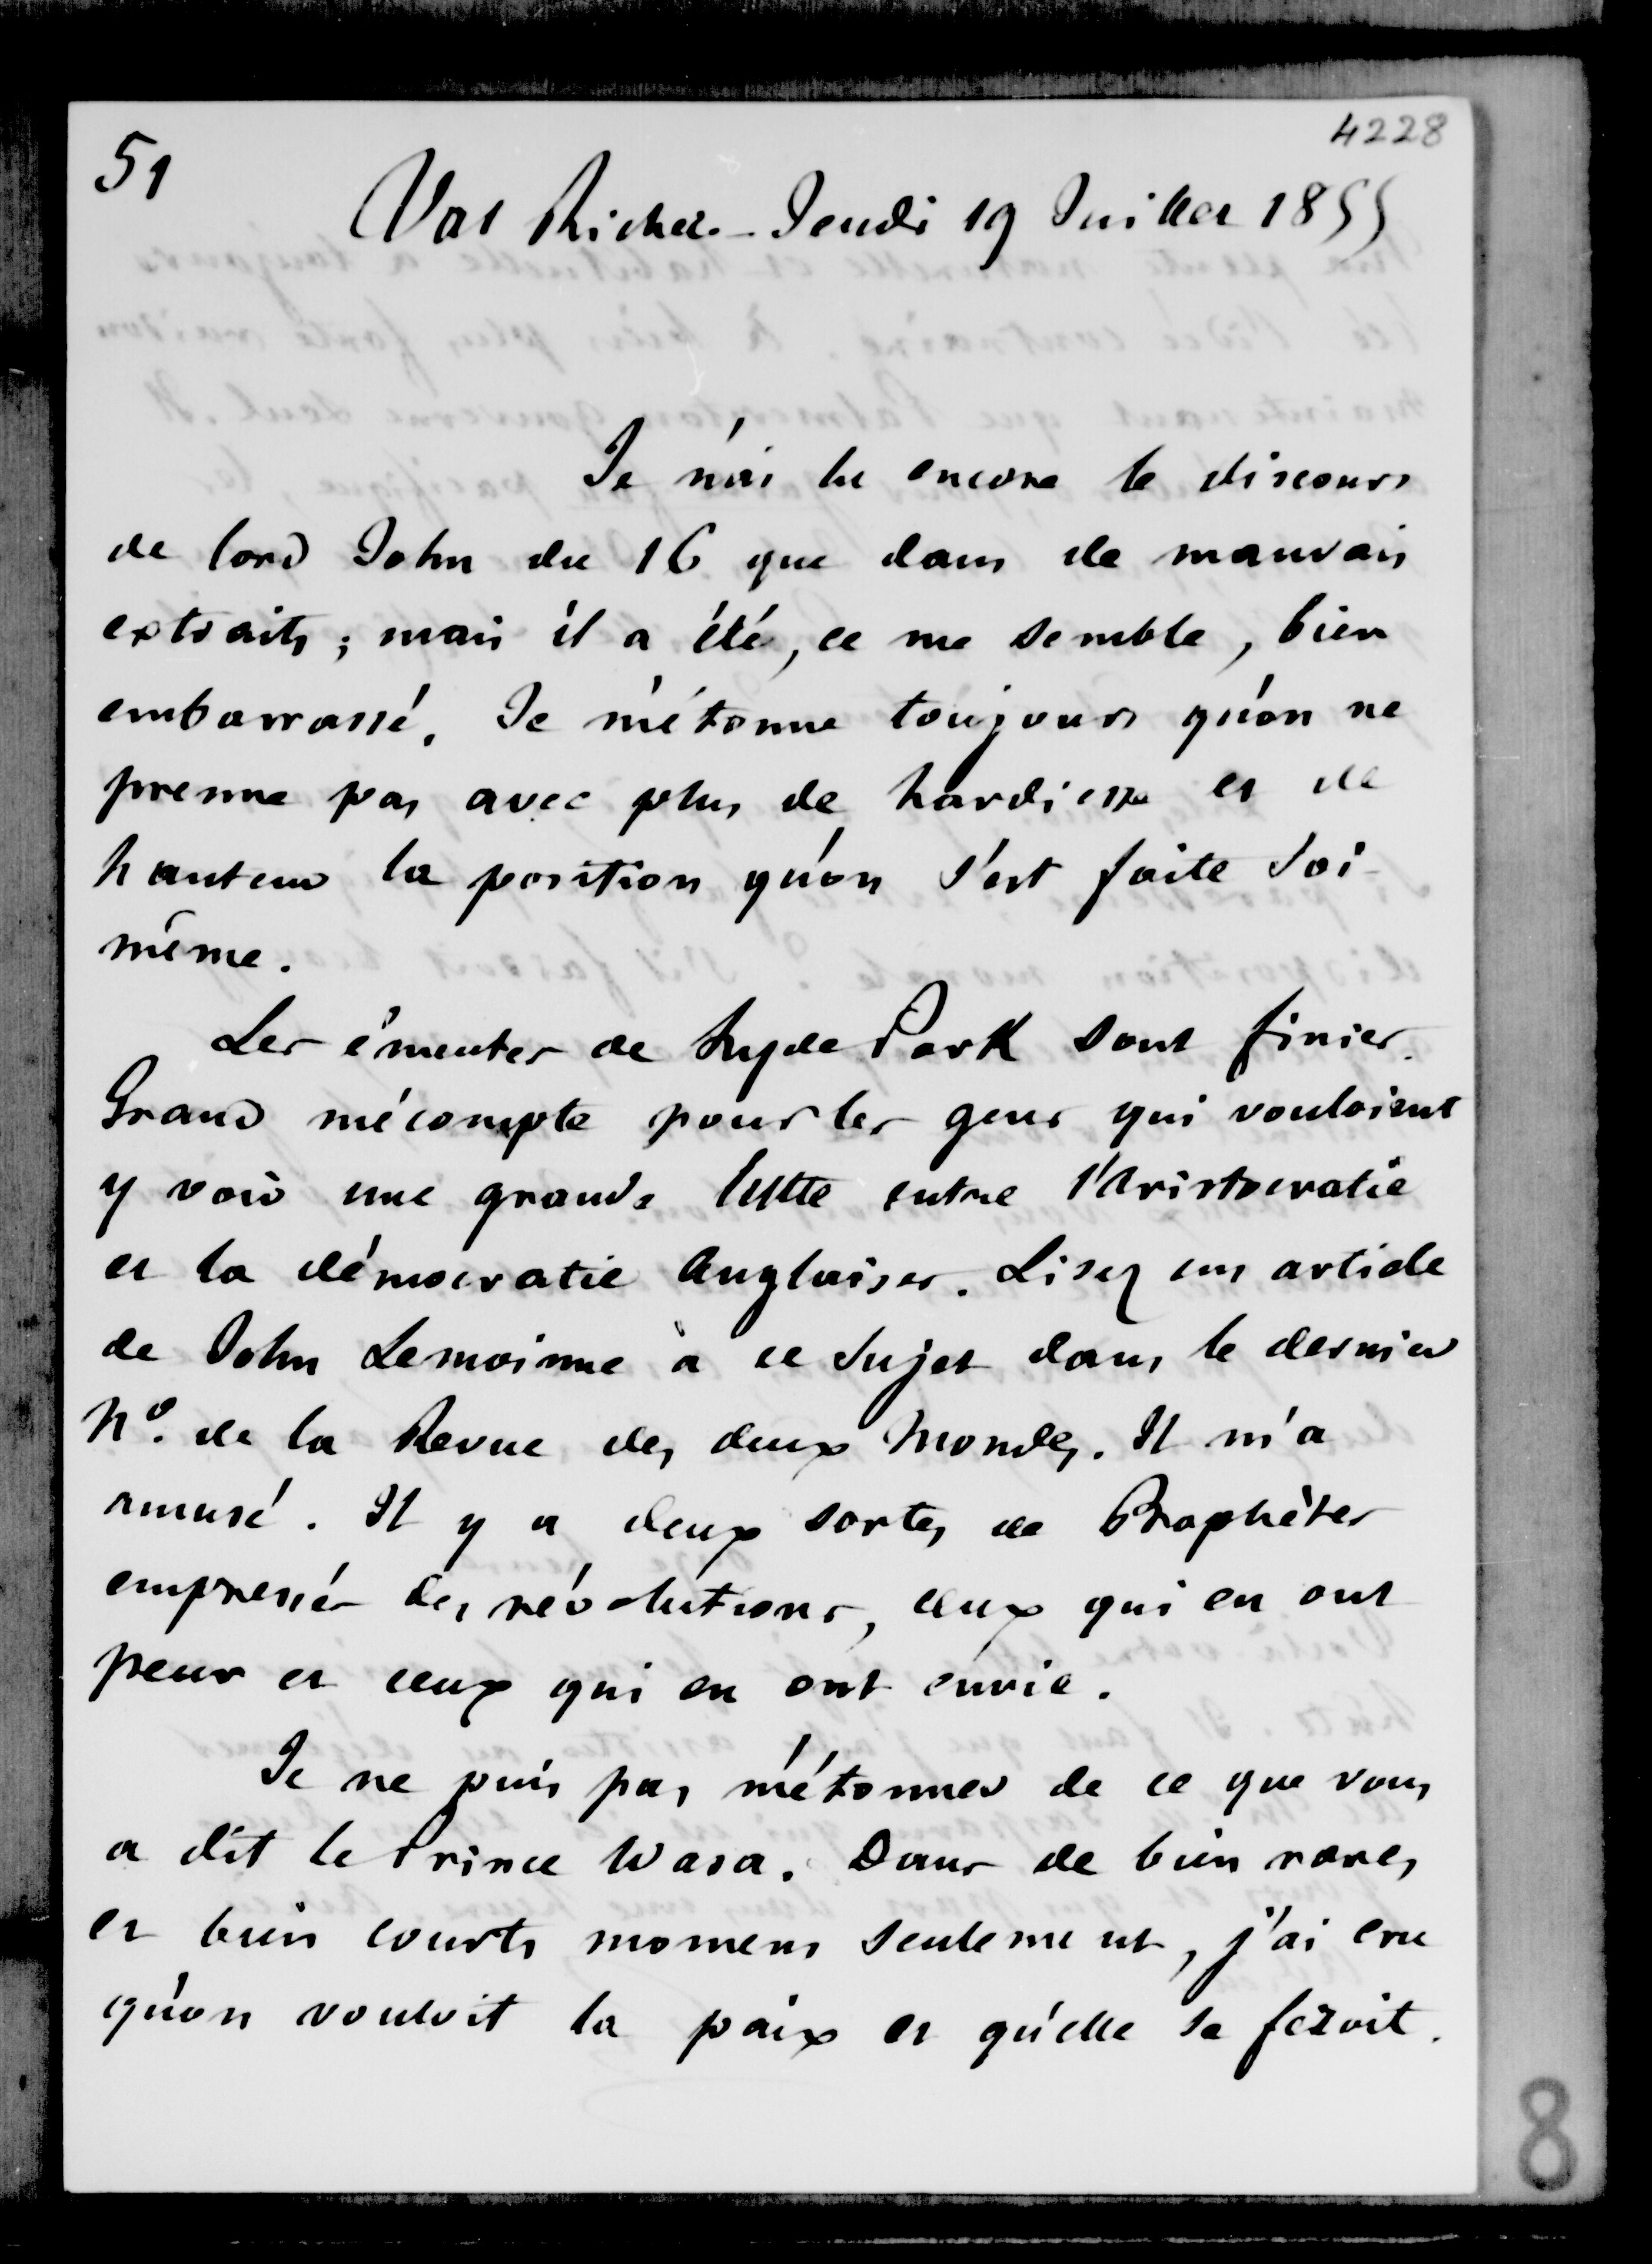 4228
51
Val Richer. - Jeudi 19 Juillet 1855
Je n'ai lu encore le discours
de lord John du 16 que dans de mauvais
extraits ; mais il a été, ce me semble, bien
embarrassé. Je m'étonne toujours qu'on ne
prenne pas avec plus de hardiesse et de
hauteur la position qu'on s'est faite soi-
même.
Les émeutes de hyde Park sont finies.
Grand mécompte pour les gens qui vouloient
y voir une grande lutte entre l'Aristocratie
et la démocratie Anglaises. Lisez un article
de John Lemoinne à ce sujet dans le dernier
No. de la Revue des deux Mondes. Il m'a
amusé. Il y a deux sortes de Prophètes
empressés des révolutions, ceux qui en ont
peur et ceux qui en ont envie.
Je ne puis pas m'étonner de ce que vous
a dit le Prince Wasa. Dans de bien rares
et bien courts momens seulement, j'ai cru
qu'on vouloit la paix et qu'elle se feroit.
8